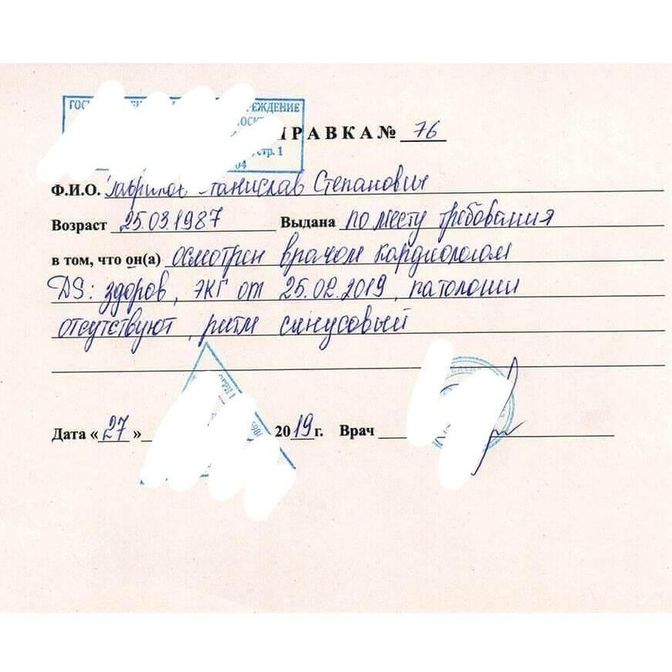 ГОС РЕЖДЕНИЕ
стр. 1
РАВКА № 76
Ф.И.О. Станислав Степанович
Возраст 25.03.1987 Выдана по месту требования
в том, что он(а) осмотрен врачом кардиологом
DS: здоров, ЭКГ от 25.02.2019, патологии
отсутствуют, ритм синусовый
Дата « 27 » 2019 г. Врач